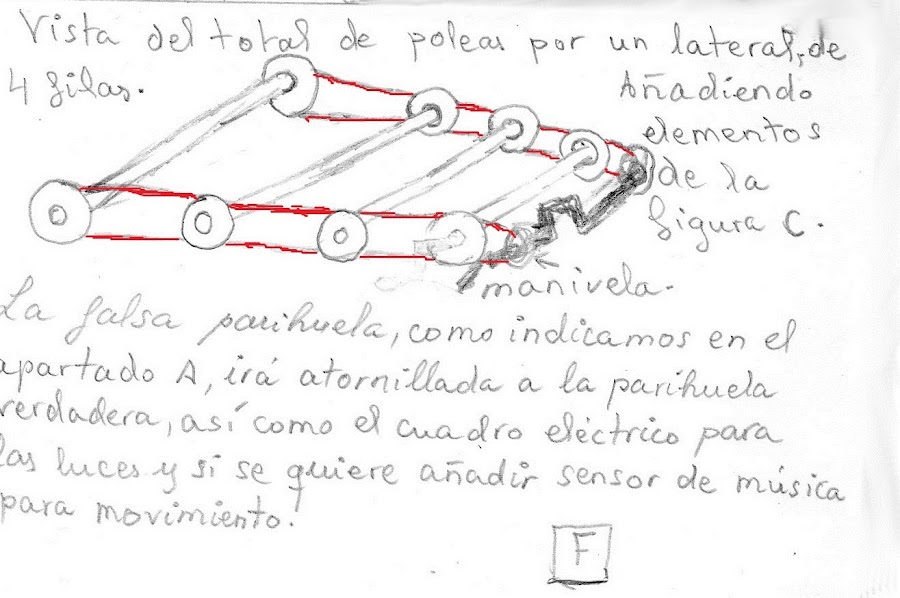 Vista del total de poleas por un lateral, de
4 filas.
Añadiendo
elementos
de la
figura C.
mañivela.
La falsa parihuela, como indicamos en el
apartado A, irá atornillada a la parihuela
verdadera, así como el cuadro eléctrico para
las luces y si se quiere añadir sensor de música
para movimiento!
F